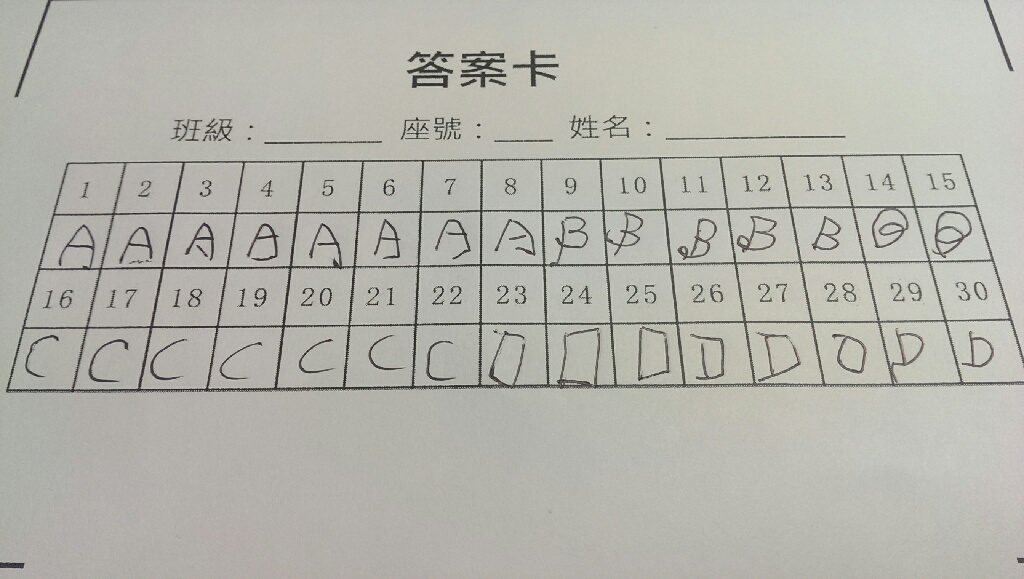 答案卡
班級：________ 座號：____ 姓名：____________
1 2 3 4 5 6 7 8 9 10 11 12 13 14 15
A A A A A A A A B B B B B B B
16 17 18 19 20 21 22 23 24 25 26 27 28 29 30
C C C C C C C D D D D D D D D